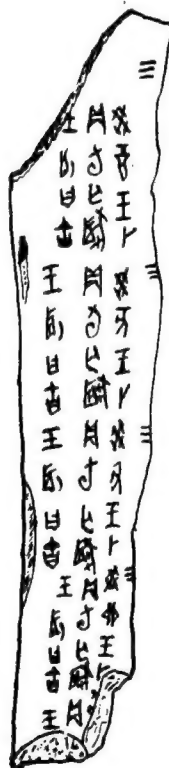 癸酉王卜
貞旬亡𡆥
王占曰吉
三
癸亥王卜
貞旬亡𡆥
王占曰吉
三
癸丑王卜
貞旬亡𡆥
王占曰吉
三
癸卯王卜
貞旬亡𡆥
王占曰吉
三
貞
王